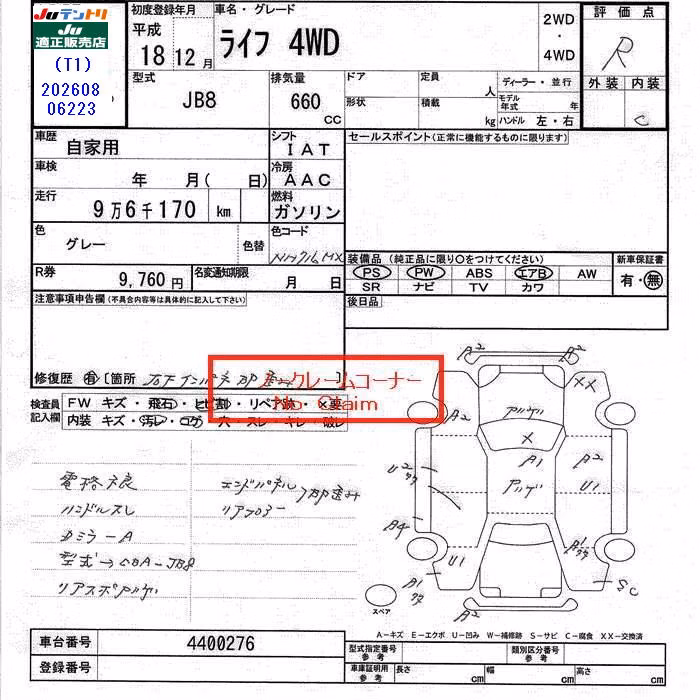 JUテントリ
JU適正販売店
(T1)
202608
06223
初度登録年月
平成
18 12月
車名・グレード
ライフ 4WD
2WD
・
4WD
評価点
R
外装 内装
C
型式
JB8
排気量
660
CC
ドア 定員 人
形状 積載 kg
ディーラー・並行
モデル年式 年
ハンドル 左・右
車歴
自家用
シフト
IAT
セールスポイント(正常に機能するものに限ります)
車検
年 月( 日)
冷房
AAC
走行
9万6千170 km
燃料
ガソリン
色
グレー
色替
色コード
NH716MX
装備品(純正品に限り○をつけてください)
PS PW ABS エアB AW
SR ナビ TV カワ
新車保証書
有・無
R券
9,760円
名変通知期限
月 日
後日品
注意事項申告欄(不具合内容等は具体的に記入して下さい)
修復歴 有 [箇所
ノークレームコーナー
No Claim
検査員記入欄
FW キズ・飛石・ヒビ割・リペア跡・×要
内装 キズ・汚レ・コゲ・穴・スレ・キレ・破レ
電格不良
ハンドルスレ
Dミラ-A
型式→CBA-JB8
リアスポアルゲ
エンドパネル
リアフロアー
部歪み
A2
A2
XX
A2
アルゲ
X
A1
A2
U2
アルゲ
U1
A4
A1
U1
A1
SC
A2
スペア
A-キズ E-エクボ U-凹み W-補修跡 S-サビ C-腐食 XX-交換済
車台番号
4400276
登録番号
型式指定番号
参考
類別区分番号
参考
車庫証明用
参考
長さ cm 幅 cm 高さ cm